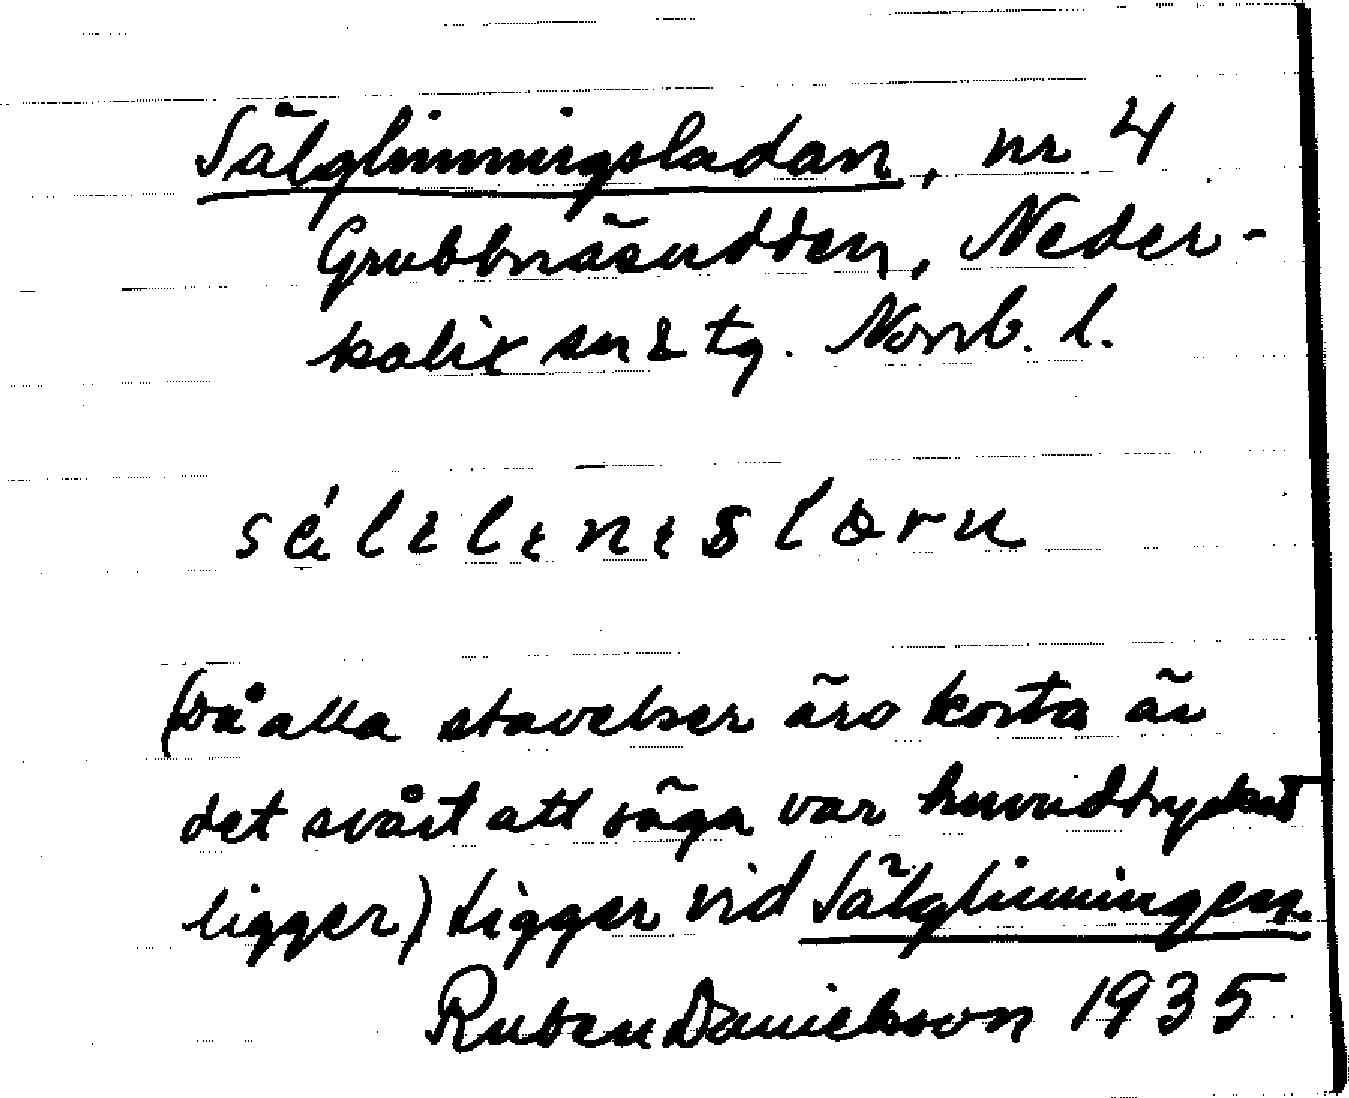 Sälglinningsladan, nr 4
Grubbnäsudden, Neder-
kalix sn & tg. Norrb. l.
(Då alla stavelser äro korta är
det svårt att säga var huvudtrycket
ligger) Ligger vid Sälglinningen
Ruben Danielsson 1935